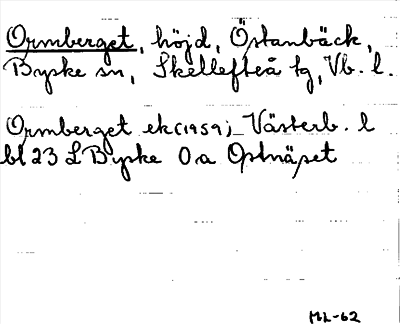 Ormberget, höjd, Östanbäck,
Byske sn, Skellefteå tg, Vb. l.
Ormberget ek(1959); Västerb. l
bl 23 L Byske 0a Ostnäset
ML-62